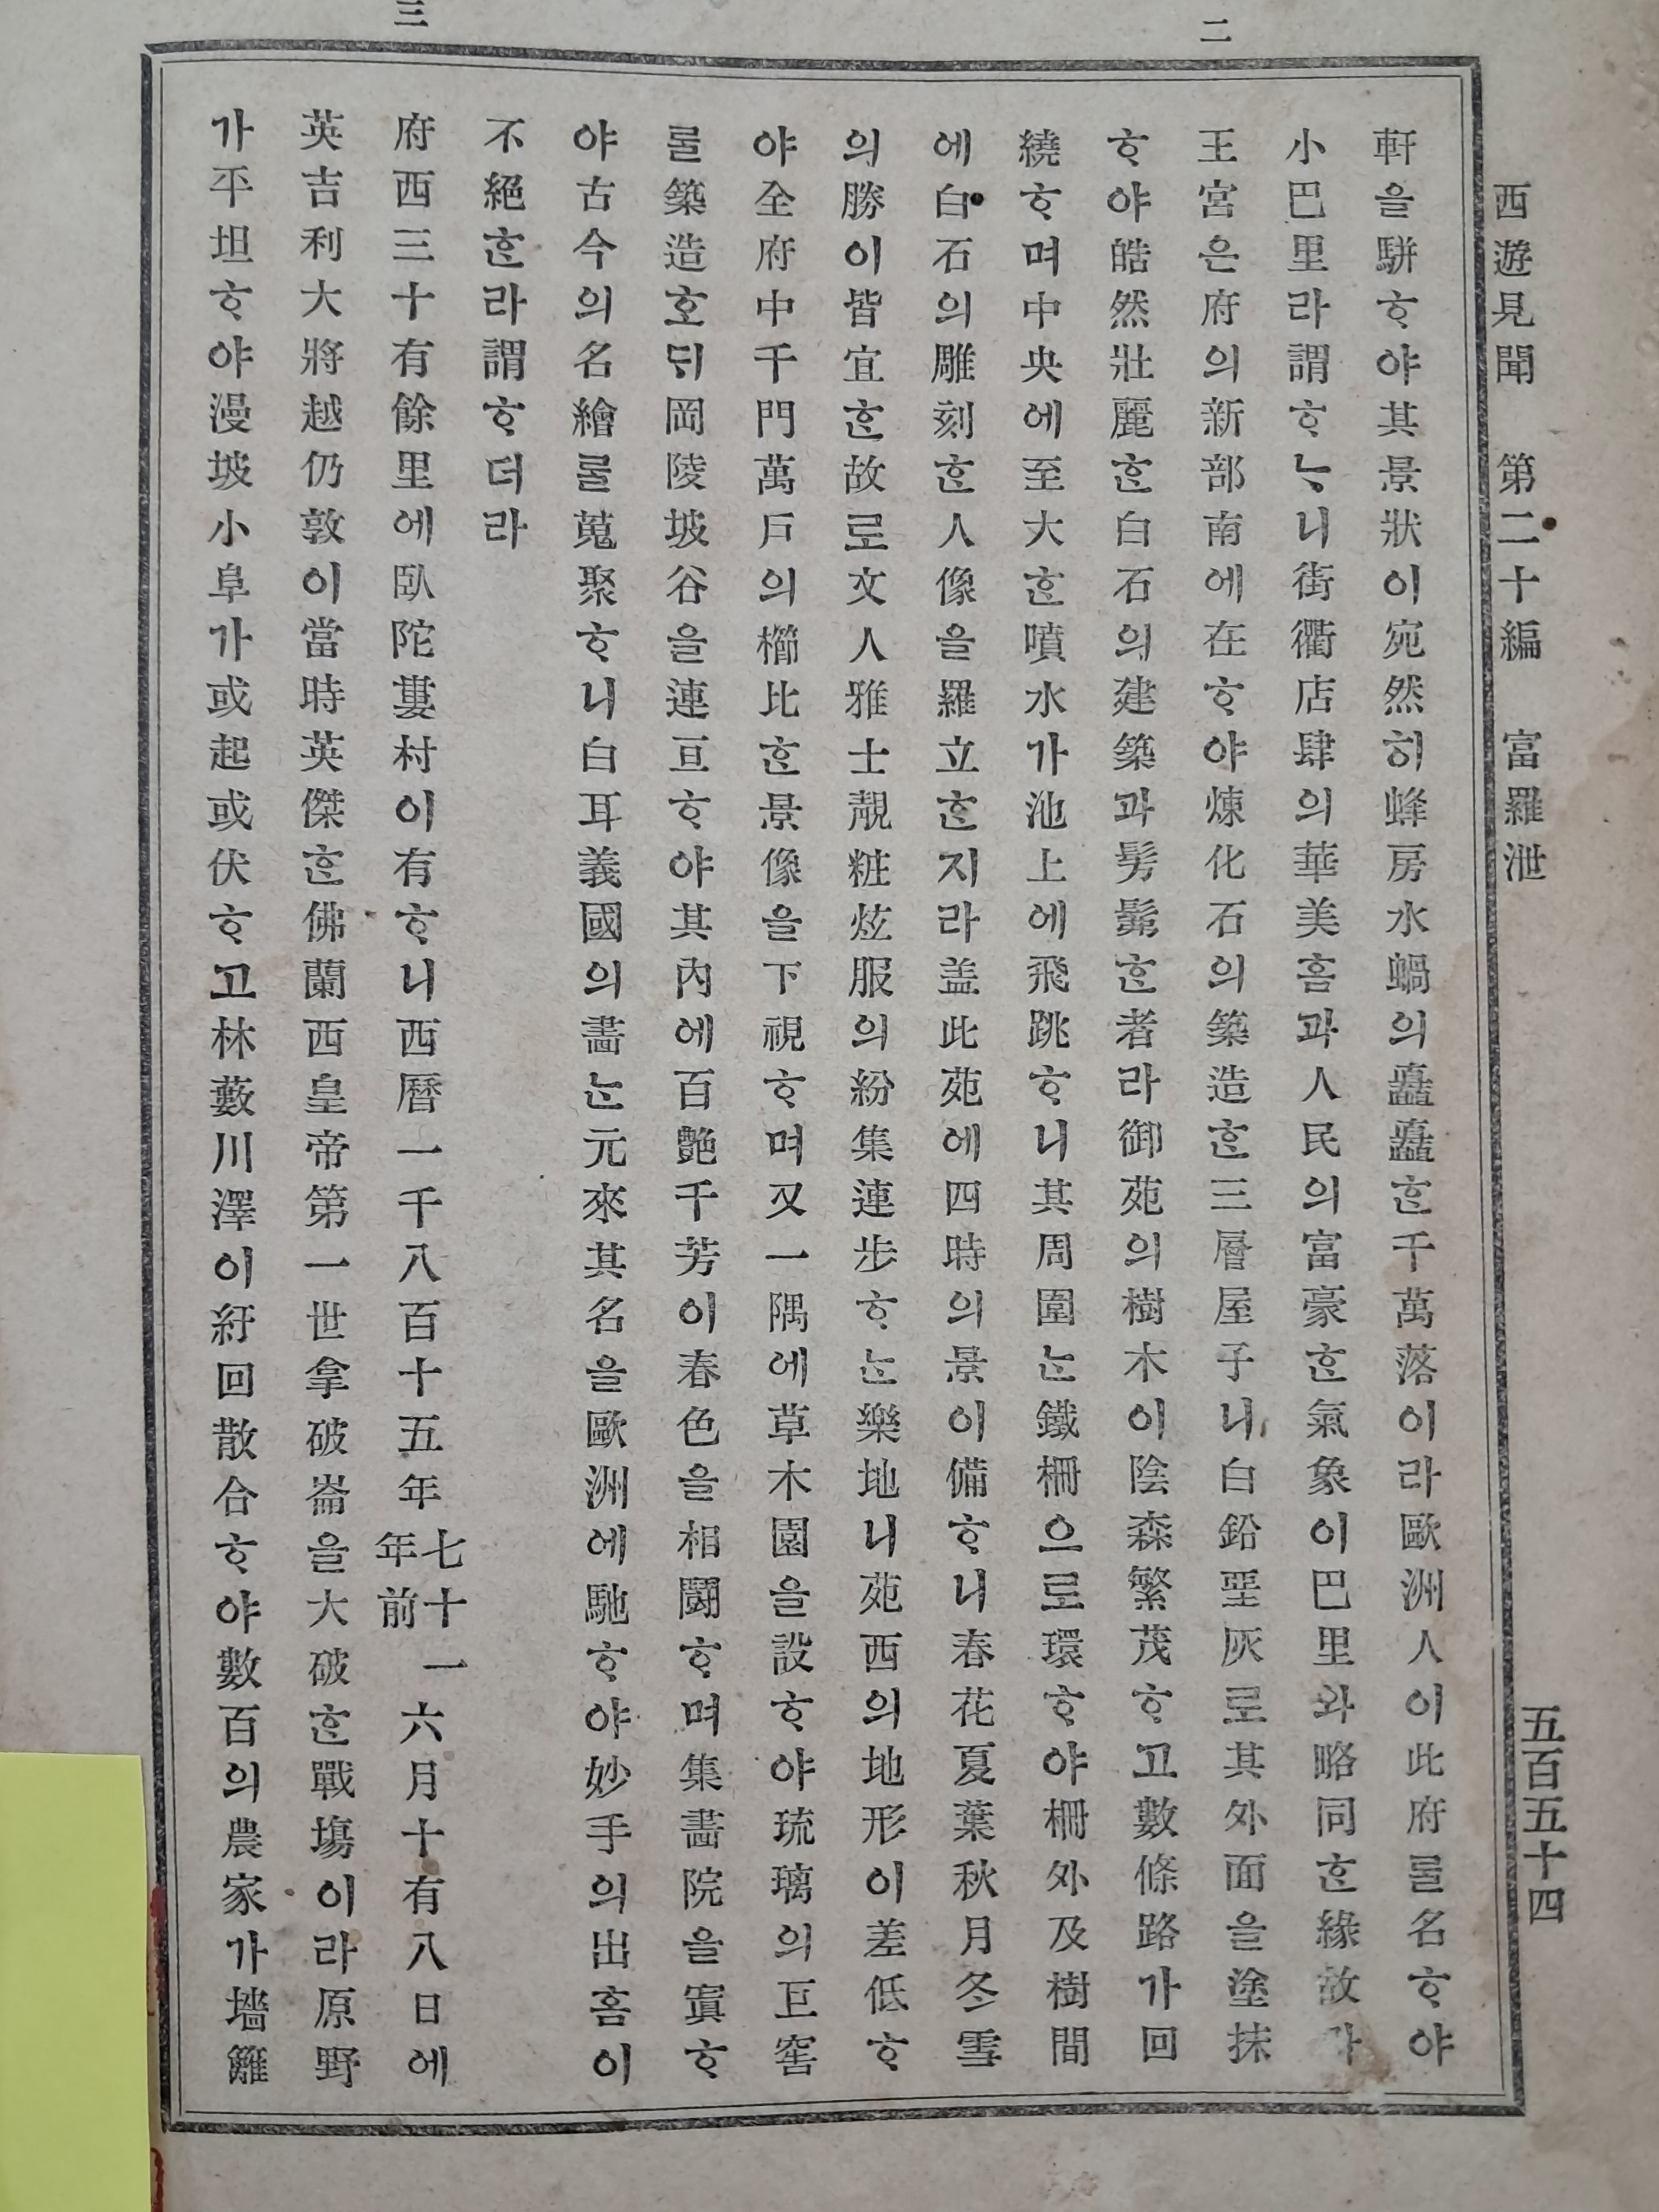 西遊見聞 第二十編 富羅泄 五百五十四
二
三
軒을駢ᄒᆞ야其景狀이宛然히蜂房水蝸의矗矗ᄒᆞᆫ千萬落이라歐洲人이此府ᄅᆞᆯ名ᄒᆞ야
小巴里라謂ᄒᆞᄂᆞ니街衢店肆의華美홈과人民의富豪ᄒᆞᆫ氣象이巴里와略同ᄒᆞᆫ緣故라
王宮은府의新部南에在ᄒᆞ야煉化石의築造ᄒᆞᆫ三層屋子니白鉛堊灰로其外面을塗抹
ᄒᆞ야皓然壯麗ᄒᆞᆫ白石의建築과髣髴ᄒᆞᆫ者라御苑의樹木이陰森繁茂ᄒᆞ고數條路가回
繞ᄒᆞ며中央에至大ᄒᆞᆫ噴水가池上에飛跳ᄒᆞ니其周圍ᄂᆞᆫ鐵柵으로環ᄒᆞ야柵外及樹間
에白石의雕刻ᄒᆞᆫ人像을羅立ᄒᆞᆫ지라盖此苑에四時의景이備ᄒᆞ니春花夏葉秋月冬雪
의勝이皆宜ᄒᆞᆫ故로文人雅士靚粧炫服의紛集連步ᄒᆞᄂᆞᆫ樂地니苑西의地形이差低ᄒᆞ
야全府中千門萬戶의櫛比ᄒᆞᆫ景像을下視ᄒᆞ며又一隅에草木園을設ᄒᆞ야琉璃의巨窖
ᄅᆞᆯ築造호ᄃᆡ岡陵坡谷을連亘ᄒᆞ야其內에百艶千芳이春色을相鬪ᄒᆞ며集畵院을寘ᄒᆞ
야古今의名繪ᄅᆞᆯ蒐聚ᄒᆞ니白耳義國의畵ᄂᆞᆫ元來其名을歐洲에馳ᄒᆞ야妙手의出홈이
不絕ᄒᆞᆫ라謂ᄒᆞ더라
府西三十有餘里에臥陀婁村이有ᄒᆞ니西曆一千八百十五年七十一年前六月十有八日에
英吉利大將越仍敦이當時英傑ᄒᆞᆫ佛蘭西皇帝第一世拿破崙을大破ᄒᆞᆫ戰塲이라原野
가平坦ᄒᆞ야漫坡小阜가或起或伏ᄒᆞ고林藪川澤이紆回散合ᄒᆞ야數百의農家가墻籬